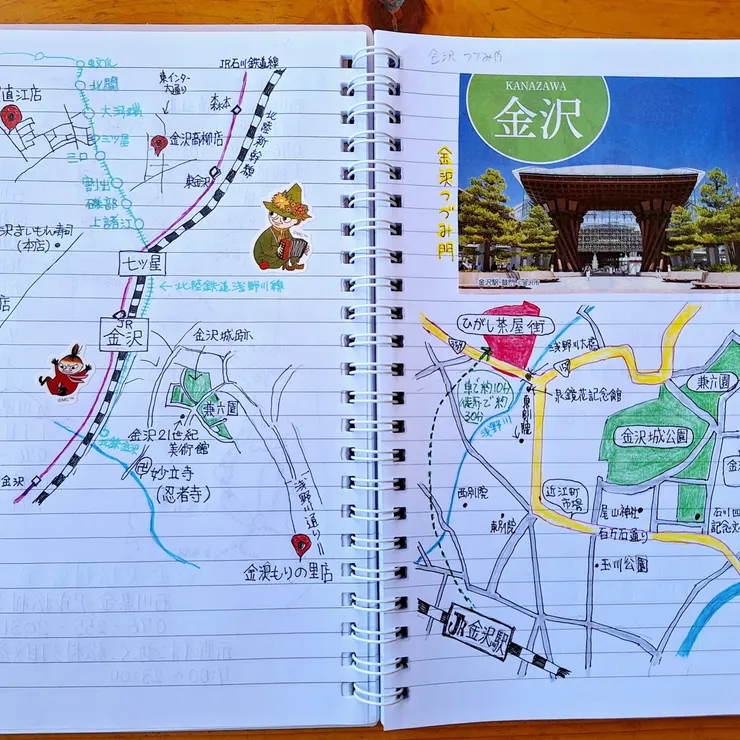 直江店
蚊爪
北間
大河端
三ツ屋
三口
割出
磯部
上諸江
七ツ屋
JR石川鉄道線
東インター大通り
森本
金沢高柳店
東金沢
北陸新幹線
沢まいもん寿司
(本店)
店
←北陸鉄道浅野川線
JR
金沢
金沢城跡
兼六園
金沢21世紀
美術館
卍妙立寺
(忍者寺)
浅野川通り
金沢もりの里店
金沢
金沢 つづみ門
KANAZAWA
金沢
金沢つづみ門
ひがし茶屋街
359
浅野川大橋
159
泉鏡花記念館
車で約10分
徒歩で約
30分
浅野川
東別院
兼六園
金沢城公園
西別院
東別院
近江町
市場
尾山神社
石川四
記念文
百万石通り
玉川公園
JR金沢駅